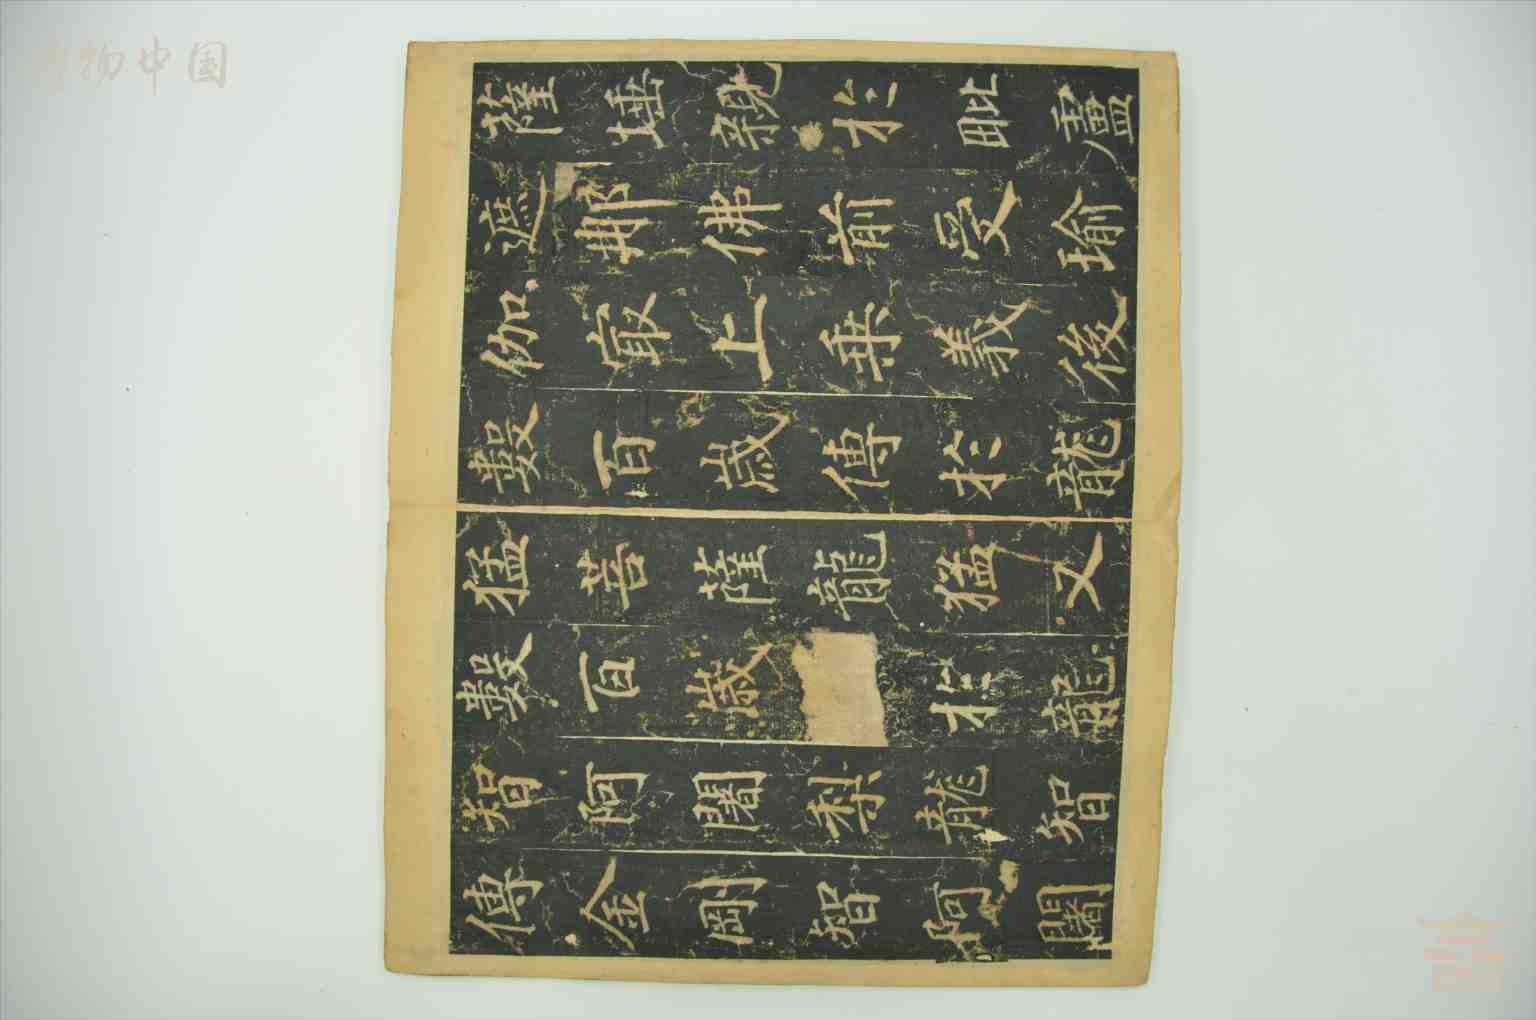 薩埵親於毗盧
遮那佛前受瑜
伽㝡上乘義後
數百歲傳於龍
猛菩薩龍猛又
數百歲於龍
智阿闍梨龍智
傳金剛智阿闍
物中国